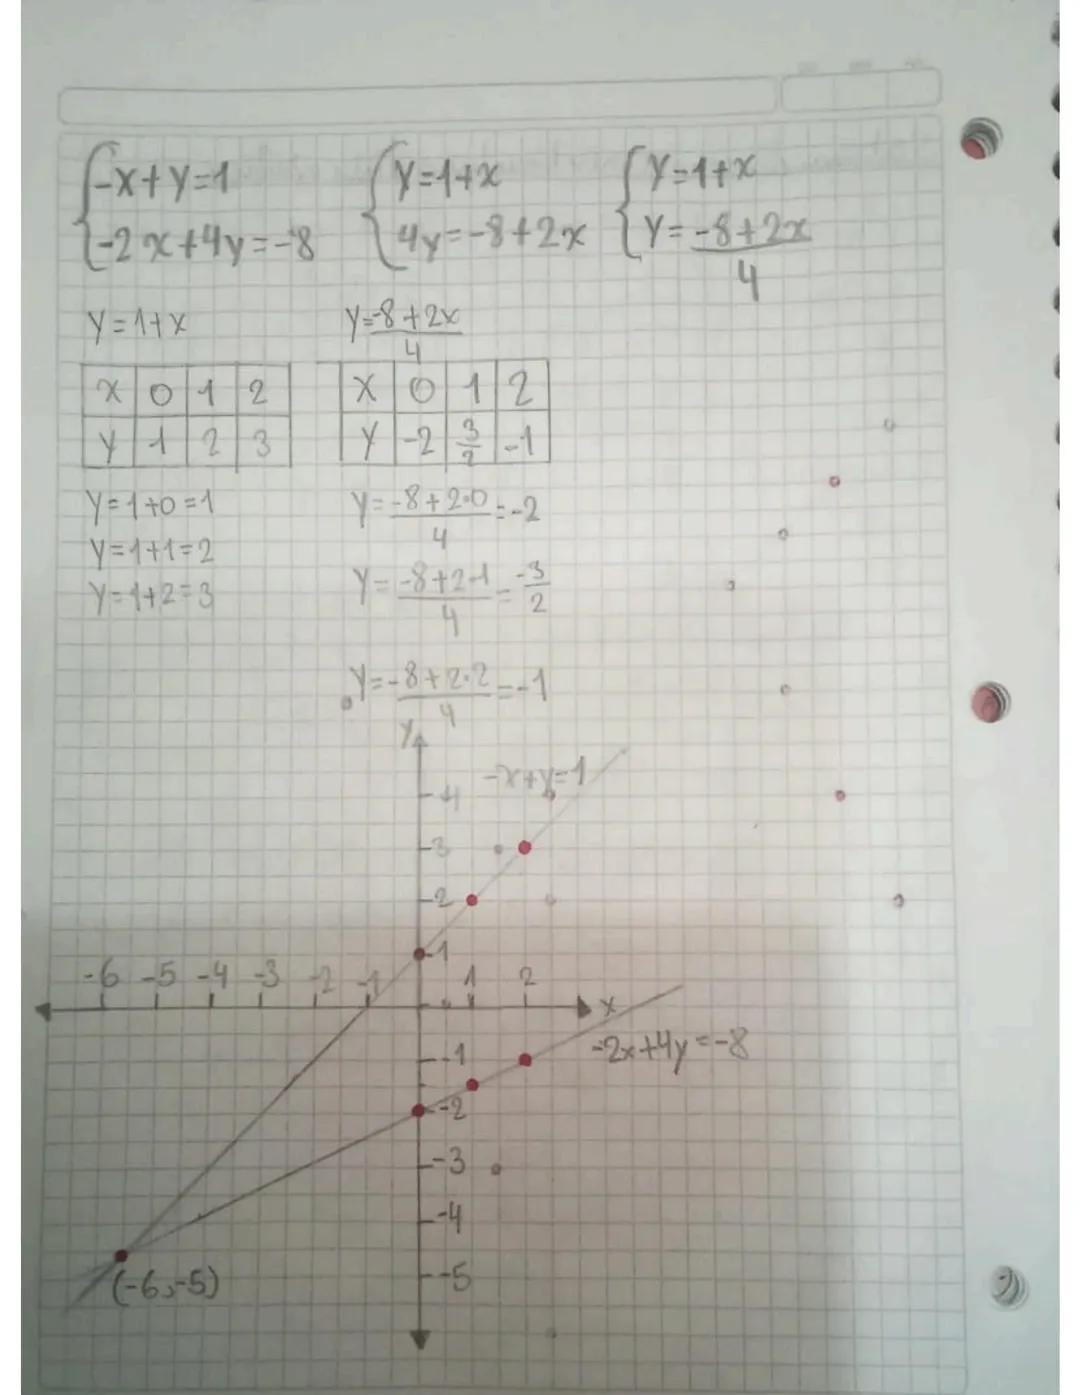 -x+y=1   y=1+x   y=1+x
-2x+4y=-8   4y=-8+2x   y=\frac{-8+2x}{4}
y=1+x   y=\frac{-8+2x}{4}
x 0 1 2   x 0 1 2
y 1 2 3   y -2 \frac{3}{2} -1
y=1+0=1   y=\frac{-8+2·0}{4}=-2
y=1+1=2
y=1+2=3   y=\frac{-8+2·1}{4}=\frac{-3}{2}
y=\frac{-8+2·2}{4}=-1
y
-x+y=1
4
3
2
1
-6 -5 -4 -3 -2 -1 1 2
x
-2x+4y=-8
-1
-2
-3
-4
-5
(-6,-5)